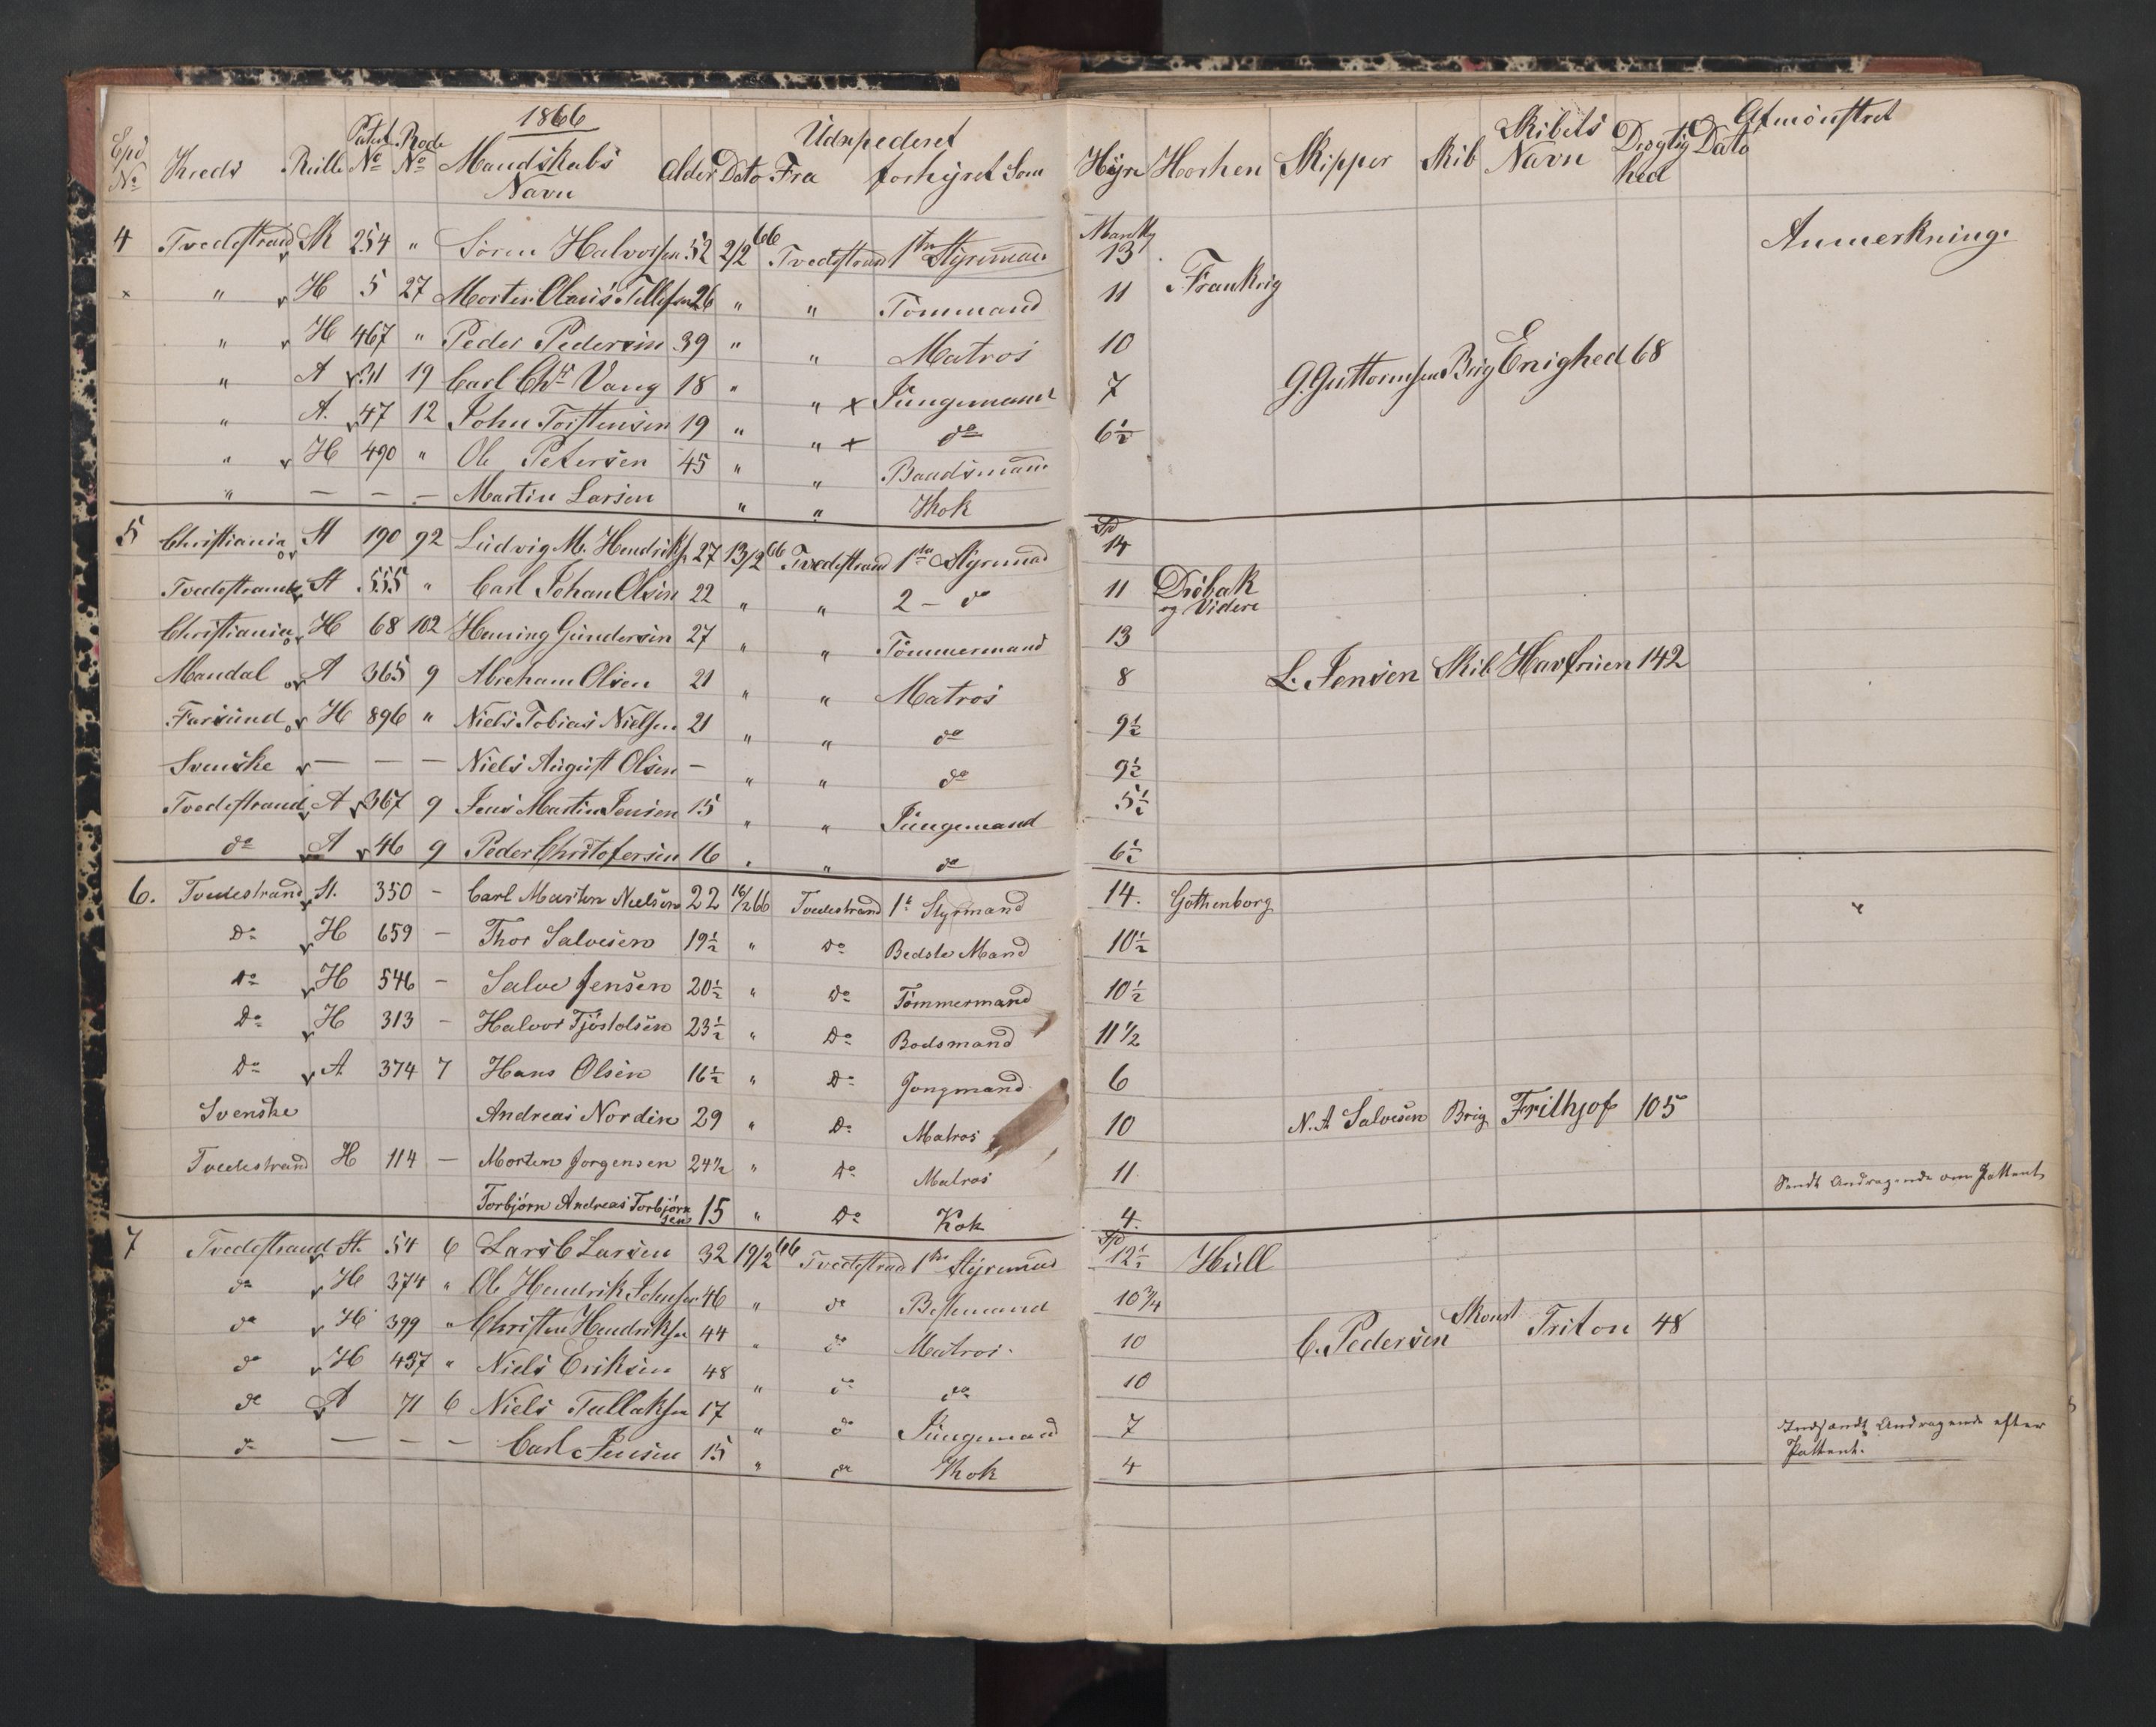 1866
Udspederet
Afmönstret
Exp No Kreds Rulle Patent No Rode No Mandskabs Navn Alder Dato Fra forhyret Som Hyre Hvorhen Skipper Skib Skibets Navn Drægtighed Dato
Anmerkning.
4 Tvedestrand 254 " Sören Halvorsen 52 2/2 66 Tvedestrand 1ste Styrmand 13
" H 5 27 Morten Olaus Tellefsen 26 " " Tömmand 11 Frankrig
" H 467 " Peder Pedersen 39 " " Matros 10
" A 311 19 Carl Chr Vang 18 " " x Jüngmand 7 G. Guttormsen Brig Enighed 68
" A. 47 12 John Torstensen 19 " " x do 6½
" H 490 " Ole Petersen 45 " " Baadsmand
" — — — Martin Larsen " " Kok
5 Christiania St 190 92 Ludvig M. Hendriks. 27 13/2 66 Tvedestrand 1ste Styrmand Spd 14
Tvedestrand St 555 " Carl Johan Olsen 22 " " 2 – do 11 Dröbak og Videre
Christiania H 68 102 Henning Gundersen 27 " " Tömmermand 13
Mandal A 365 9 Abraham Olsen 21 " " Matros 8 L. Jensen Skib Havfruen 142
Farsund H 896 " Niels Tobias Nielsen 21 " " do 9½
Svenske — — — Niels August Olsen — " " do 9½
Tvedestrand A 367 9 Jens Martin Jensen 15 " " Jüngemand 5½
do A 46 9 Peder Christofersen 16 " " do 6½
6. Tvedestrand St. 350 – Carl Morten Nielsen 22 16/2 66 Tvedestrand 1e Styrmand 14. Gothenborg
Do H 659 – Thor Salvesen 19½ " Do Bedste Mand 10½
Do H 546 – Salve Jensen 20½ " Do Tömmermand 10½
Do H 313 – Halvor Tjöstolsen 23½ " Do Bodsmand 11½
Do A 374 7 Hans Olsen 16½ " Do Jongmand 6
Svenske Andreas Nordin 29 " Do Matros 10 N. A Salvesen Brig Frithjof 105
Tvedestrand H 114 – Morten Jorgensen 24½ " Do Matros 11 Sendt Andragende om Pattent
Torbjörn Andreas Torbjörnsen 15 " Do Kok 4.
7 Tvedestrand St. 54 6 Lars C Larsen 32 19/2 66 Tvedestrand 1ste Styrmand Spd 12½ Hull
do H 374 " Ole Hendrik Johnsen 46 " do Bestemand 10¾
do H 399 " Christen Hendriksen 44 " do Matros. 10 C. Pedersen Skonrt Triton 48
do H 437 " Niels Eriksen 48 " do do 10
do A 71 6 Niels Tallaksen 17 " do Jüngemand 7 Indsendt Andragende efter Pattent.
do — — — Carl Jensen 15 " do Kok 4